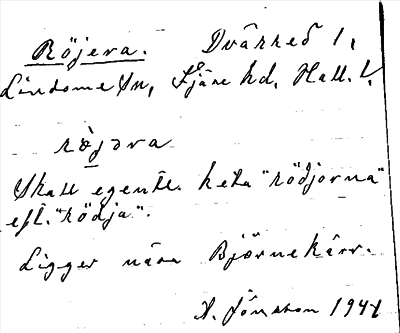 Röjera. Dvärred 1,
Lindome Sn, Fjäre hd, Hall. l,
röjəra
Skall egentl. heta "rödjorna"
eft. "rödja".
Ligger nära Björnekärr.
A. Jönsson 1941